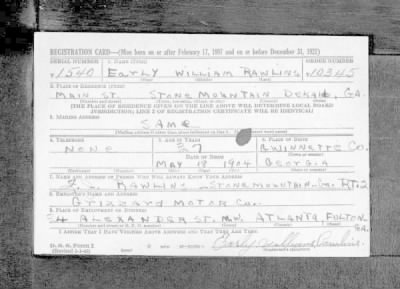 REGISTRATION CARD—(Men born on or after February 17, 1897 and on or before December 31, 1921)
SERIAL NUMBER 1. NAME (Print) ORDER NUMBER
1540 Early William Rawlins 10345
(First) (Middle) (Last)
2. PLACE OF RESIDENCE (Print)
MAIN ST. STONE MOUNTAIN DEKALB, GA
(Number and street) (Town, township, village, or city) (County) (State)
[THE PLACE OF RESIDENCE GIVEN ON THE LINE ABOVE WILL DETERMINE LOCAL BOARD
JURISDICTION; LINE 2 OF REGISTRATION CERTIFICATE WILL BE IDENTICAL]
3. MAILING ADDRESS
SAME
4. TELEPHONE 5. AGE IN YEARS 6. PLACE OF BIRTH
NONE 37 GWINNETTE CO.
DATE OF BIRTH
MAY 18 1904 GEORGIA
(Mo.) (Day) (Yr.) (State or country)
7. NAME AND ADDRESS OF PERSON WHO WILL ALWAYS KNOW YOUR ADDRESS
RAWLINS STONE MOUNTAIN, GA. RT. 2
8. EMPLOYER'S NAME AND ADDRESS
GRIZZARD MOTOR CO.
9. PLACE OF EMPLOYMENT OR BUSINESS
ALEXANDER ST. N.W. ATLANTA, FULTON
GA.
(Number and street or R. F. D. number) (Town) (County) (State)
I AFFIRM THAT I HAVE VERIFIED ABOVE ANSWERS AND THAT THEY ARE TRUE.
D. S. S. Form 1
Early William Rawlins